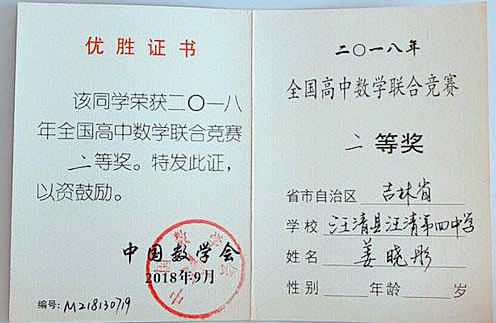 优胜证书
该同学荣获二〇一八
年全国高中数学联合竞赛
二等奖。特发此证，
以资鼓励。
中国数学会
2018年9月
编号：M218130719
二〇一八年
全国高中数学联合竞赛
二等奖
省市自治区 吉林省
学校 汪清县汪清第四中学
姓名 姜晓彤
性别 年龄 岁